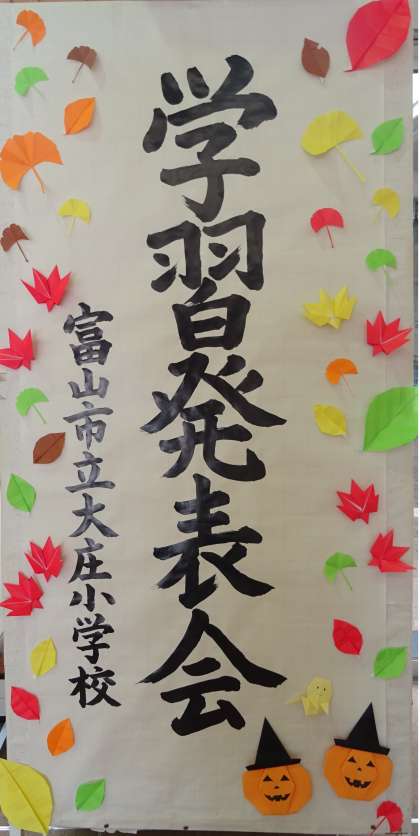 学習発表会
富山市立大庄小学校